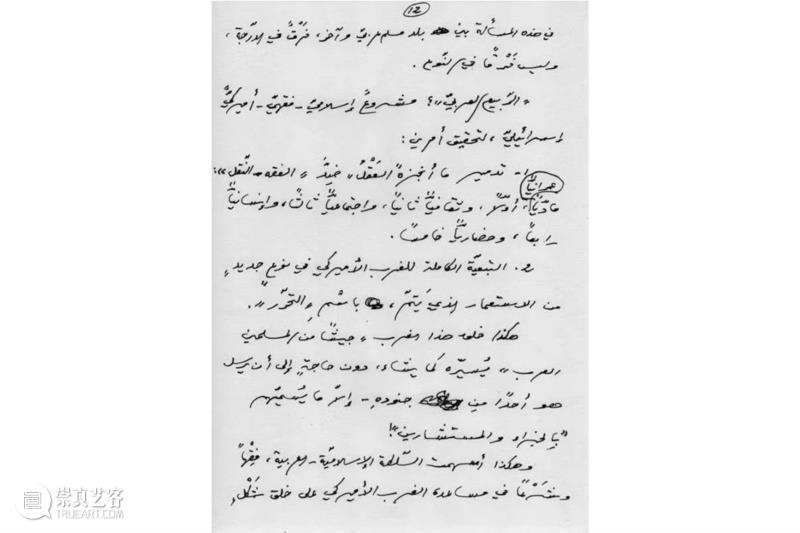 12
في هذه المسألة بين بلد مسلم عربيّ وآخر، فَرْقٌ في الدّرجة،
وليس فَرْقًا في النّوع.
«الرّبيع العربيّ»؟ مشروعٌ إسلاميّ - فقهيّ - أميركيّ
إسرائيليّ، لتحقيق أمرين:
1- تدمير ما أنجزهُ العَقْلُ ضِدَّ «الفقه - النّقل»:
عمرانيًّا
مادّيًّا، أوّلاً، وثقافيًّا ثانيًا، واجتماعيًّا ثالثًا، وإنسانيًّا
رابعًا، وحضاريًّا خامسًا.
2. التبعيّة الكاملة للغرب الأميركي في نوع جديدٍ
من الاستعمار الذي يَتمّ، باسْمِ «التّحرّر».
هكذا خلق هذا الغرب «جيشًا من المسلمين
العرب» يُسيّره كما يشاء، دون حاجةٍ إلى أن يرسل
هو أحدًا من جنودهِ - إلاّ ما يُسمّيهم
«بالخبراء والمستشارين»!
وهكذا أسهمت السّلطة الإسلاميّة - العربية، فِقْهًا
وشَرْعًا في مساعدة الغرب الأميركي على خلق شَكْلٍ
崇真艺客
TRUEART.COM